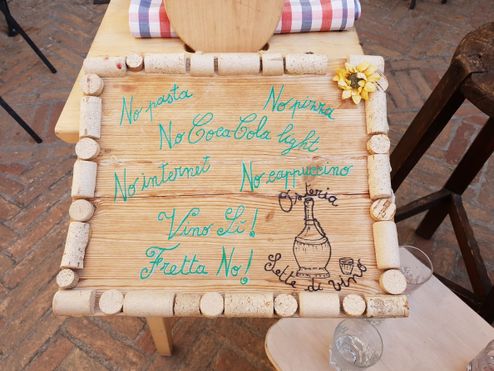 No pasta No pizza
No CocaCola light
No internet No cappuccino
Vino Sì!
Fretta No!
Osteria
Sette di vino